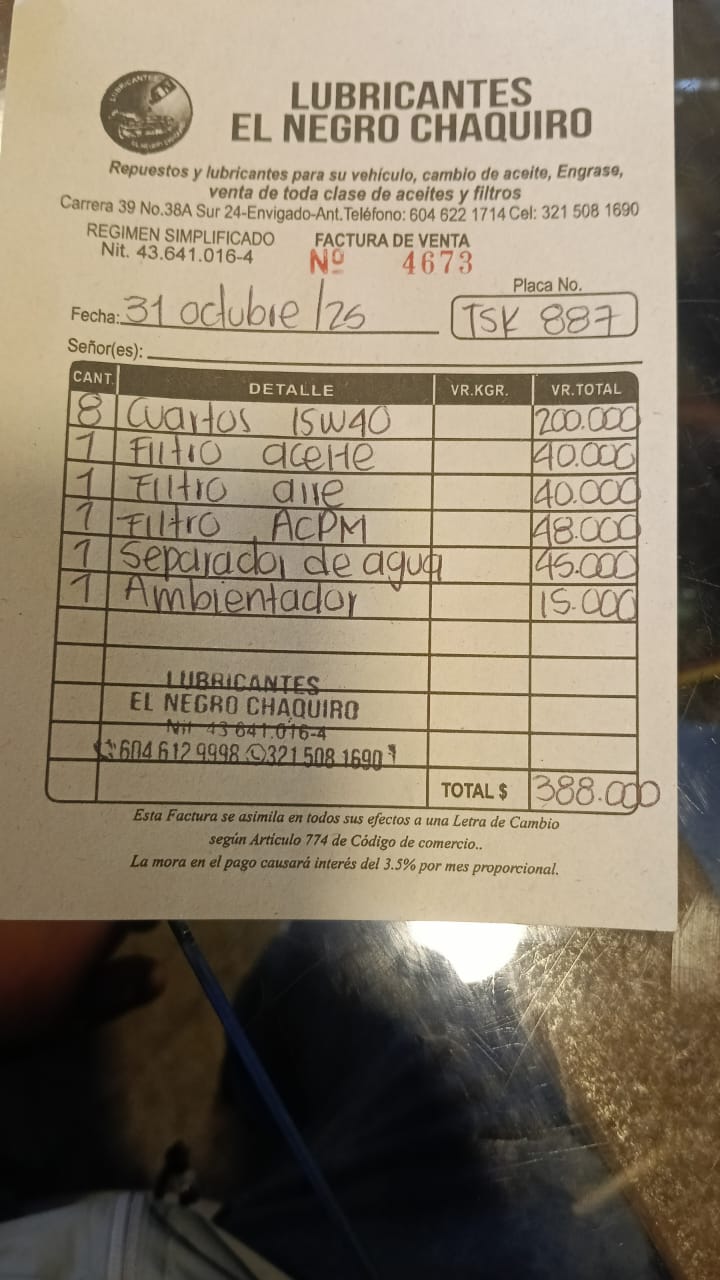 LUBRICANTES
EL NEGRO CHAQUIRO
LUBRICANTES
EL NEGRO
Repuestos y lubricantes para su vehículo, cambio de aceite, Engrase,
venta de toda clase de aceites y filtros
Carrera 39 No.38A Sur 24-Envigado-Ant.Teléfono: 604 622 1714 Cel: 321 508 1690
REGIMEN SIMPLIFICADO FACTURA DE VENTA
Nit. 43.641.016-4 Nº 4673
Placa No.
Fecha: 31 octubre /25 TSK 887
Señor(es):
CANT. DETALLE VR.KGR. VR.TOTAL
8 Cuartos 15W40 200.000
1 Filtro aceite 40.000
1 Filtro aire 40.000
1 Filtro ACPM 48.000
1 Separador de agua 45.000
1 Ambientador 15.000
LUBRICANTES
EL NEGRO CHAQUIRO
Nit 43 641.016-4
604 612 9998 321 508 1690
TOTAL $ 388.000
Esta Factura se asimila en todos sus efectos a una Letra de Cambio
según Artículo 774 de Código de comercio..
La mora en el pago causará interés del 3.5% por mes proporcional.